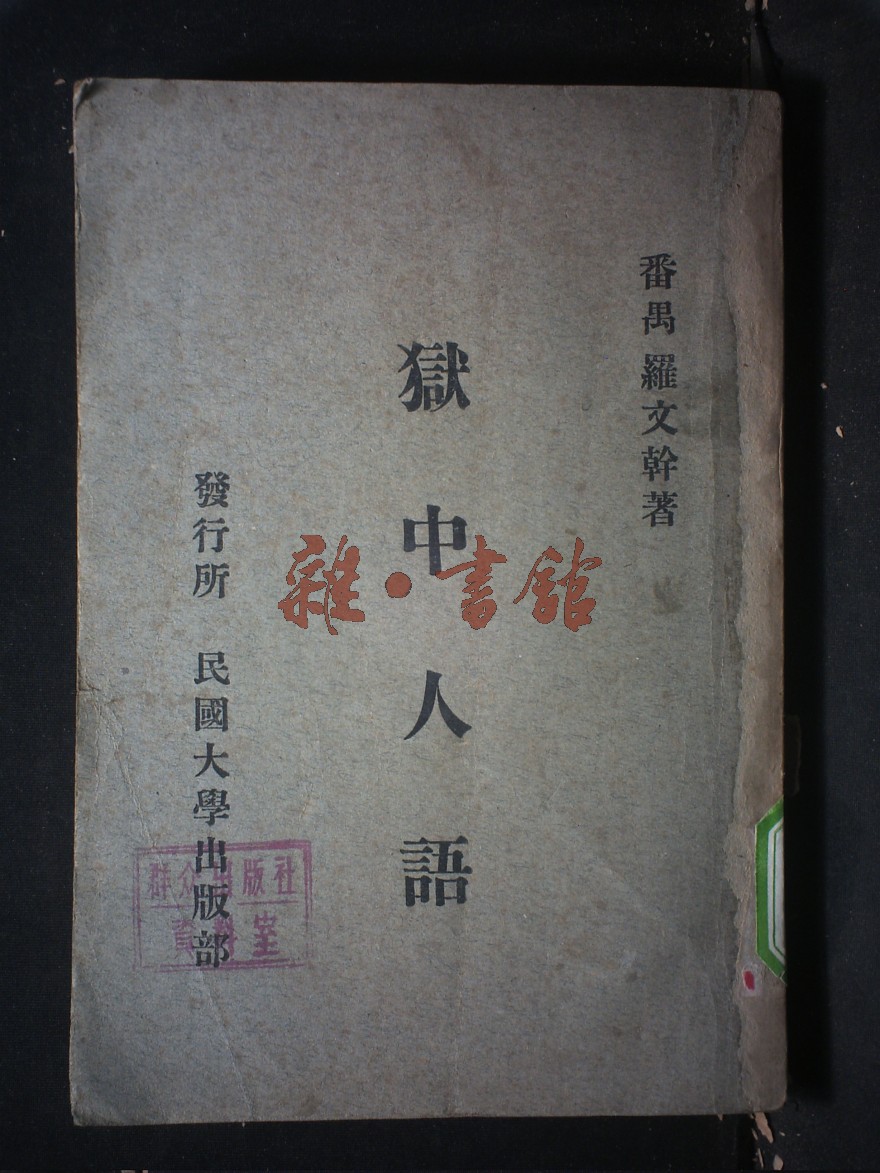 番禺 羅文幹著
獄中人語
發行所 民國大學出版部
雜·書館
群众出版社
資料室